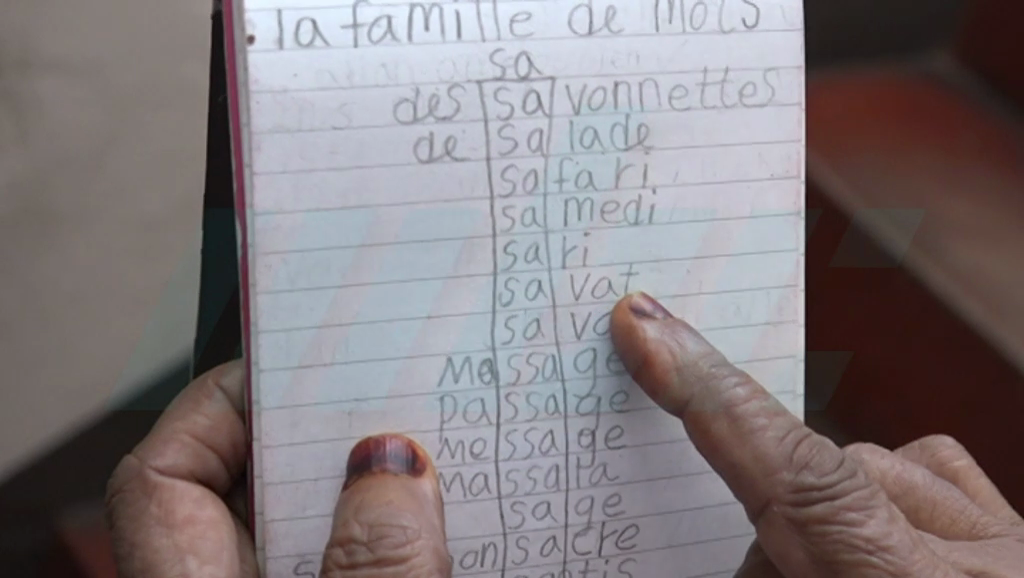 la famille de mots
sa
des savonnettes
de salade
safari
samedi
sari
savat
sa
massage
passage
message
massala
sage